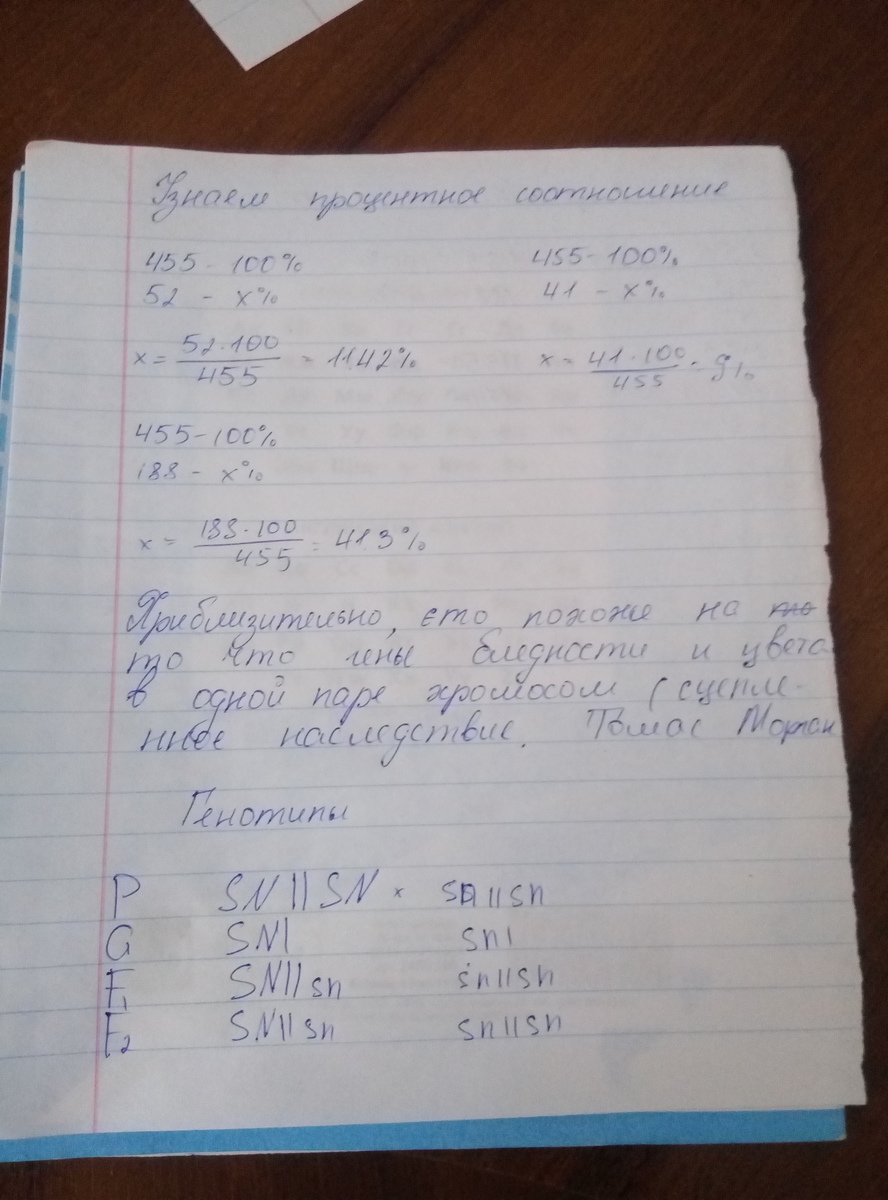 Узнаем процентное соотношение
455 - 100% 455 - 100%
52 - x% 41 - x%
x = 52·100/455 = 11.42% x = 41·100/455 = 9%
455 - 100%
188 - x%
x = 188·100/455 = 41.3%
Приблизительно, ето похоже на
то что гены бледности и цвета
в одной паре хромосом (сцепле-
нное наследствие. Томас Морган
Генотипы
P SN||SN × sn||sn
G SN| sn|
F1 SN||sn sn||sn
F2 SN||sn sn||sn